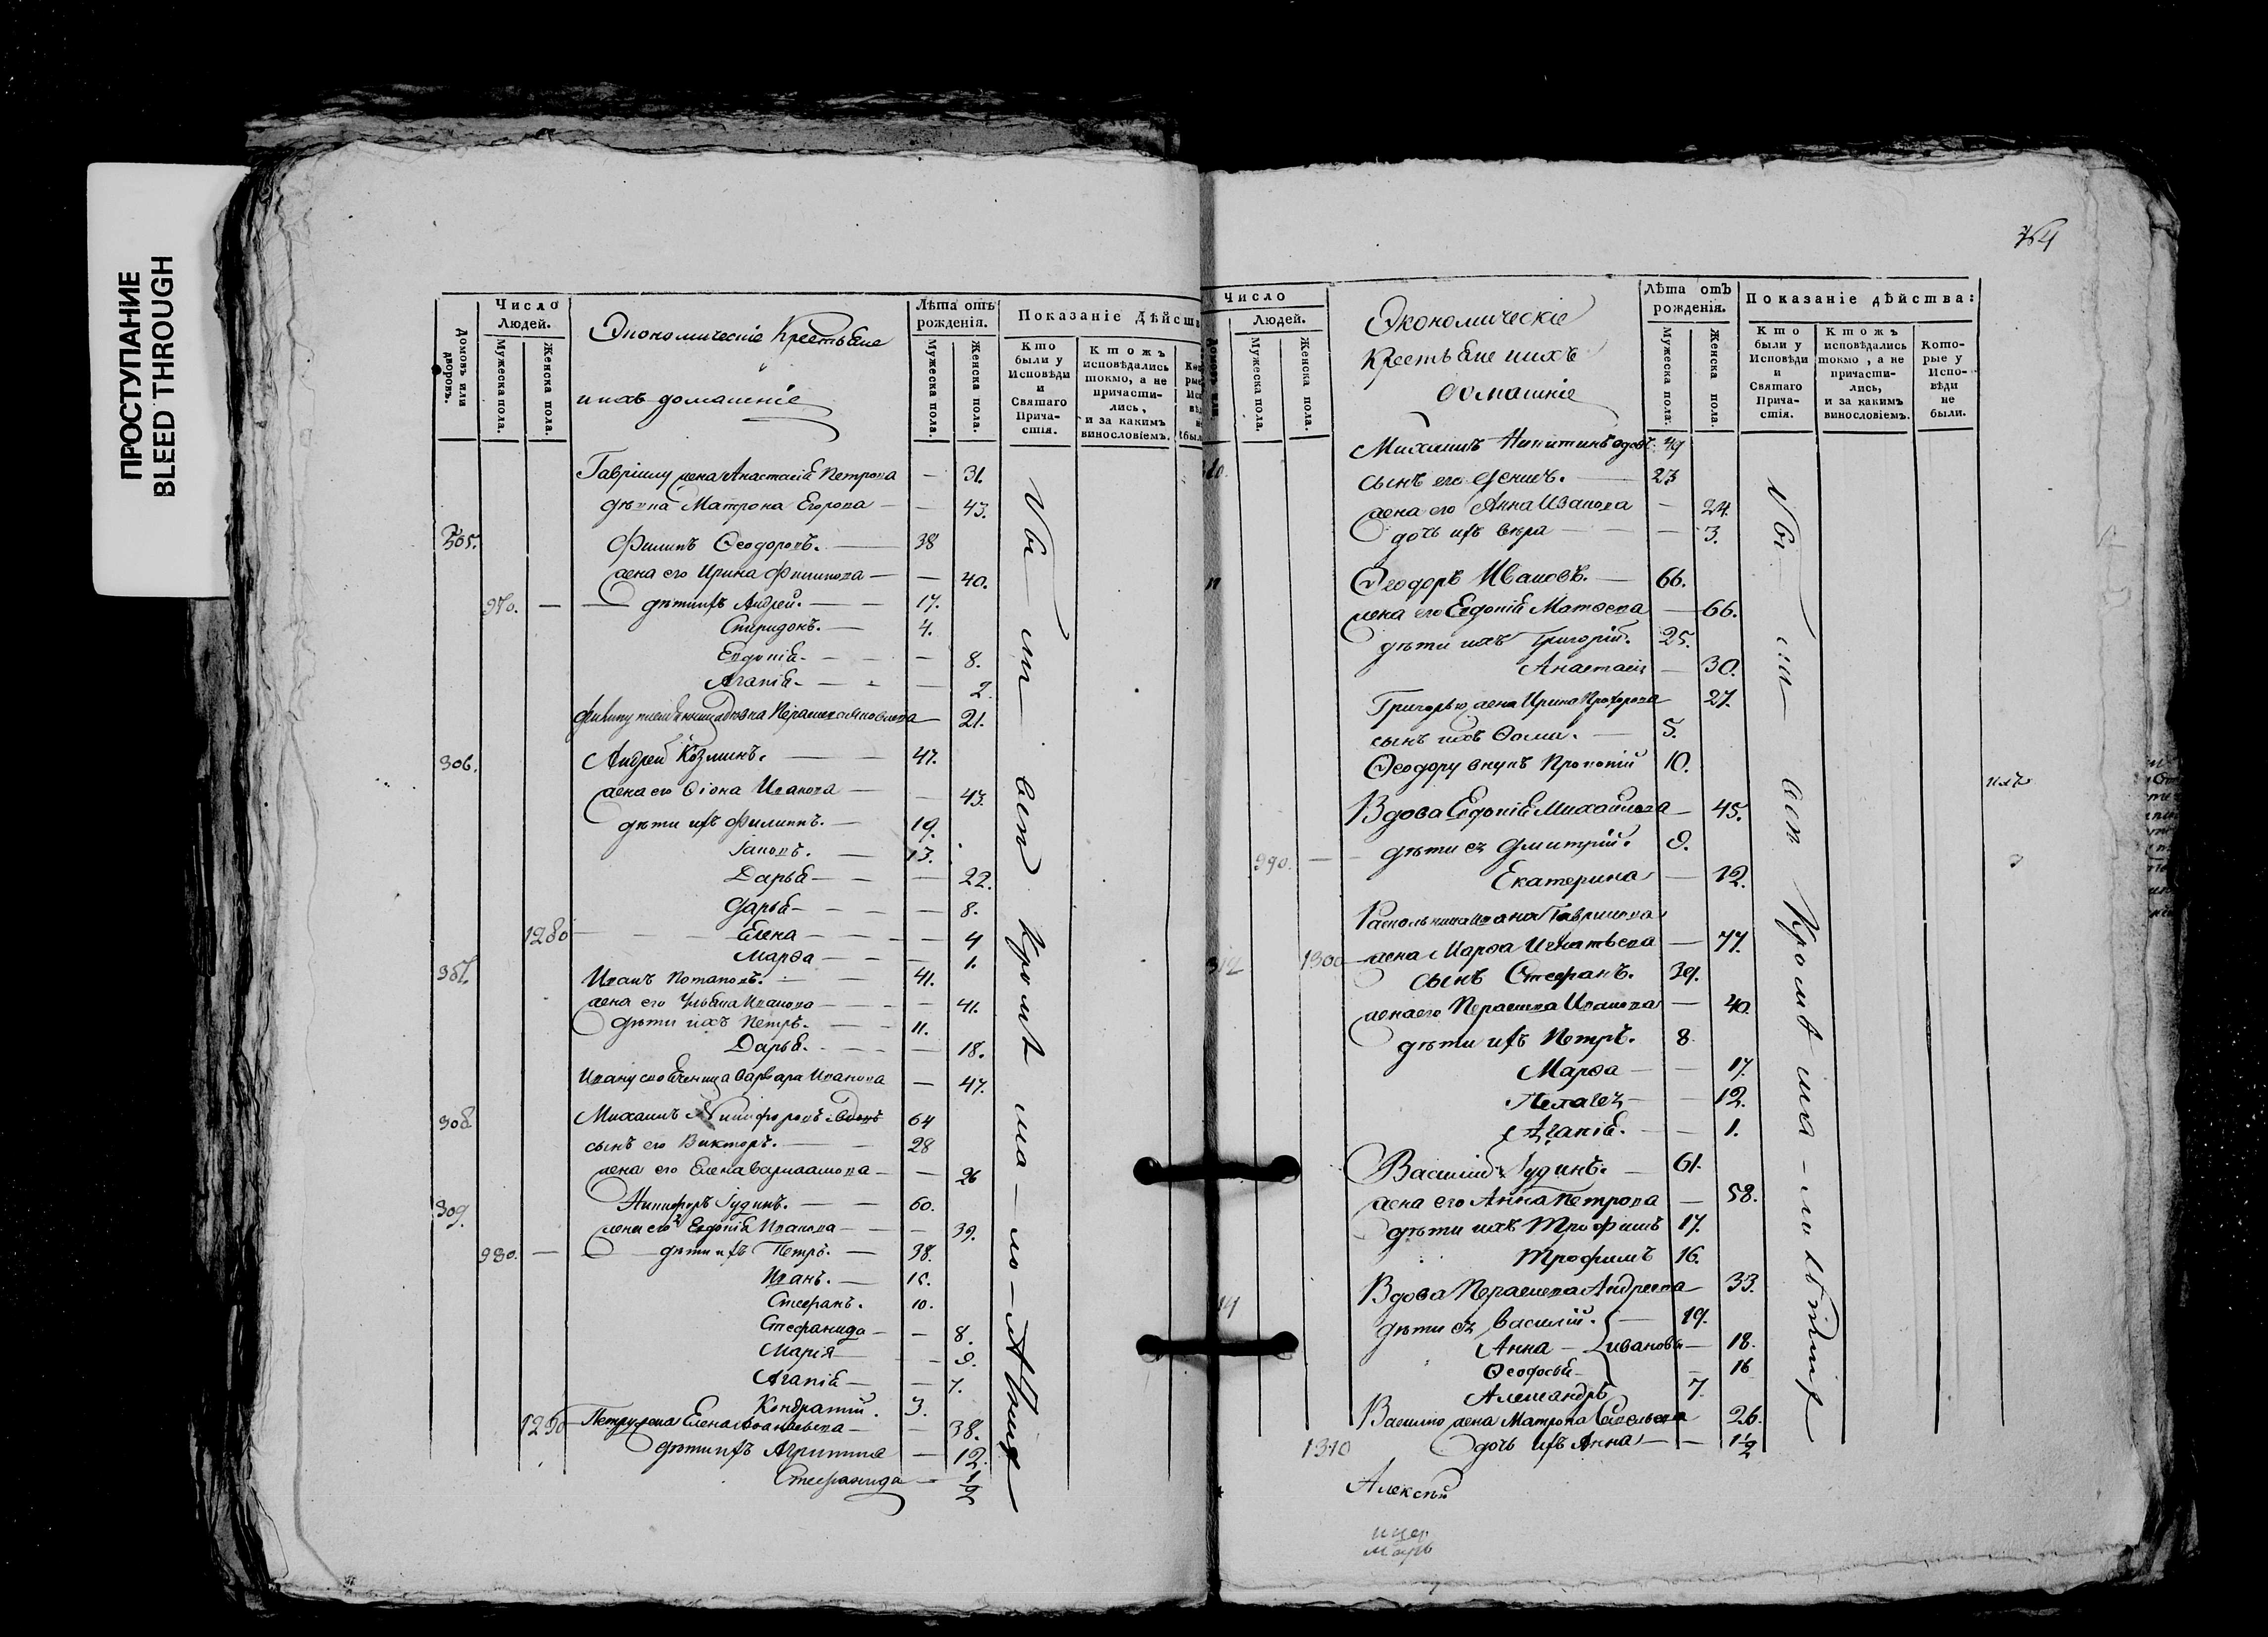 ПРОСТУПАНИЕ
BLEED THROUGH
Домовъ или дворовъ.
Число Людей.
Мужеска пола.
Женска пола.
Экономическіе Крестьяне
и ихъ домашніе
Лѣта отъ рожденія.
Мужеска пола.
Женска пола.
Показаніе Дѣйст
Кто были у Исповѣди и Святаго Прича-стія.
Ктожъ исповѣдались токмо, а не причасти-лись, и за какимъ винословіемъ.
Гаврилу жена Анастасія Петрова — 31.
дѣвка Матрона Егорова — 43.
305. Филипъ Ѳеодоровъ. — 38
жена его Ирина Филипова — — 40.
970. — дѣти ихъ Андрей. — 17.
Спиридонъ. — 4.
Евдокія — — 8.
Агапія — — 2.
Филипу Параскева Яковлева — 21.
306. Андрей Козминъ. — 47.
жена его Ѳіона Иванова — — 43.
дѣти ихъ Филиппъ. — 19.
Іаковъ. — 13.
Дарья — — 22.
Дарья — — 8.
1280 — Елена — — 4
Марѳа — — 1.
307. Иванъ Потаповъ. — 41.
жена его Ульяна Иванова — — 41.
дѣти ихъ Петръ. — 11.
Дарья. — — 18.
Ивану своячница Варвара Иванова — 47.
308 Михаилъ Никифоровъ вдовъ 64
сынъ его Викторъ. — 28
жена его Елена Варлаамова — — 26
309. Никифоръ Іудинъ. — 60.
жена его 2 Евдокія Иванова — — 39.
980. — дѣти ихъ Петръ. — 38.
Иванъ. — 15.
Стефанъ. 10.
Стефанида — — 8.
Марія — — 9.
Агапія — — 7.
Кондратій. 3.
1290 Петру жена Елена — — 38.
дѣти ихъ Агрипина — 12.
Стефанида — 1/2
Число Людей.
Мужеска пола.
Женска пола.
Экономическіе
Крестьяне и ихъ
домашніе
Лѣта отъ рожденія.
Мужеска пола.
Женска пола.
Показаніе дѣйства:
Кто были у Исповѣди и Святаго Прича-стія.
Ктожъ исповѣдались токмо, а не причасти-лись, и за какимъ винословіемъ.
Кото-рые у Испо-вѣди не были.
Михаилъ Никитинъ вдовъ. 49
сынъ его Денисъ. — 23
жена его Анна Иванова — 24.
дочь ихъ Вѣра — — 3.
Ѳеодоръ Ивановъ. — 66.
жена его Евдокія Матѳеева — 66.
дѣти ихъ Григорій. 25.
Анастасія — 30.
Григорью жена Ирина Прохорова 27.
сынъ ихъ Ѳома. — 5.
Ѳеодору внукъ Прокопій 10.
Вдова Евдокія Михайлова — 45.
990. — дѣти ея Дмитрій. 9.
Екатерина — 12.
Раскольника Ивана Гаврилова
312 1300 жена Марѳа Игнатьева — 77.
сынъ Стефанъ. 39.
жена его Параскева Иванова — 40.
дѣти ихъ Петръ. 8.
Марѳа — — 17.
Пелагея — — 12.
Агапія. — — 1.
Василій Іудинъ. — 61.
жена его Анна Петрова — 58.
дѣти ихъ Трофимъ 17.
Трофимъ 16.
Вдова Параскева Андреева 33.
дѣти ея Василій. — 19.
Анна — Ивановы — 18.
Ѳеодосья — 16
Александръ 7.
Василью жена Матрона Савельева 26.
1310 дочь ихъ Анна — — 1 1/2
Алексѣй